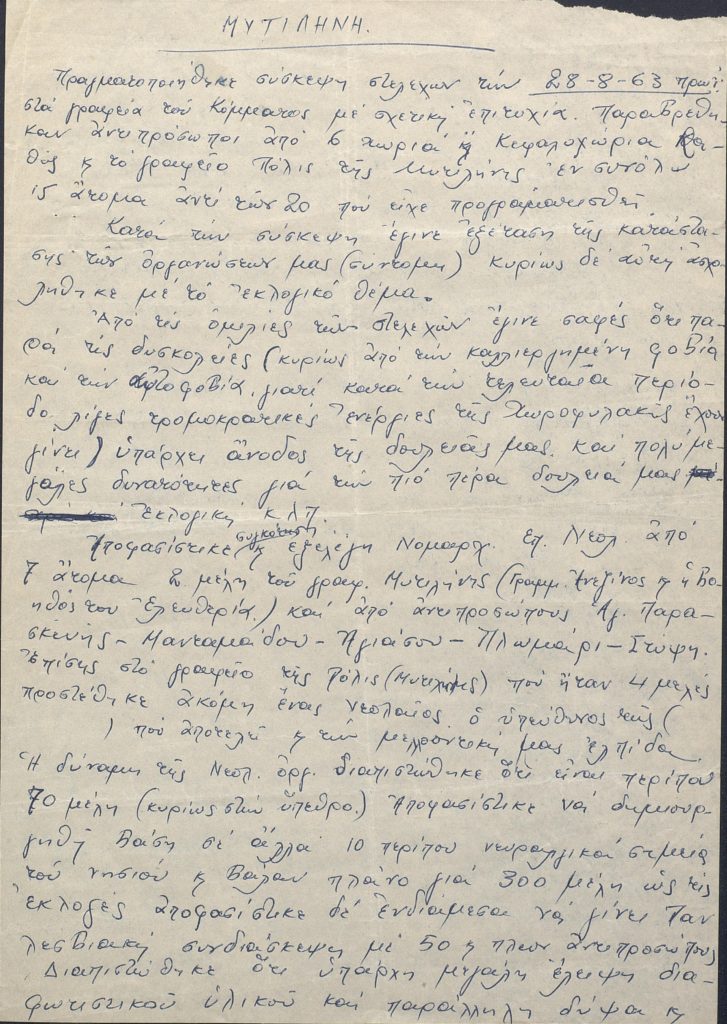 ΜΥΤΙΛΗΝΗ.
Πραγματοποιήθηκε σύσκεψη στελεχών τήν 28-8-63 πρωί
στά γραφεία τού Κόμματος μέ σχετική ἐπιτυχία. Παραβρέθη-
καν ἀντιπρόσωποι ἀπό 6 χωριά ἤ Κεφαλοχώρια κα-
θώς κ τό γραφείο Πόλις τῆς Μυτιλήνης ἐν συνόλω
15 ἄτομα ἀντί τῶν 20 πού εἶχε προγραματισθεῖ
Κατά τήν σύσκεψη ἔγινε ἐξέταση τῆς κατάστα-
σης τῶν ὀργανώσεων μας (σύντομη) κυρίως δέ αὐτή ἀσχο-
λήθηκε μέ τό ἐκλογικό θέμα.
Ἀπό τίς ὁμιλίες τῶν στελεχῶν ἔγινε σαφές ὅτι πα-
ρά τίς δυσκολείες (κυρίως ἀπό τήν καλλιεργημένη φοβία
και τήν αὐτοφοβία, γιατί κατά τήν τελευταία περίο-
δο λίγες τρομοκρατικές ἐνέργιες τῆς Χωροφυλακῆς ἔχουν
γίνει) ὑπάρχει ἄνοδος τῆς δουλειᾶς μας. και πολύ με-
γάλες δυνατότητες γιά τήν πιό πέρα δουλειά μας
ἐκλογική κ λ π.
Ἀποφασίστικε συγκρότηση κ ἐξελέγη Νομαρχ. Επ. Νεολ. ἀπό
7 ἄτομα 2 μέλη τοῦ γραφ. Μυτιλήνης (Γραμμ. κ ἡ Βο-
ηθός του Ἐλευθερία.) καί ἀπό ἀντιπροσώπους Ἁγ. Παρα-
σκευῆς - Μανταμάδου - Ἁγιάσου - Πλωμάρι - Στύψη.
Ἐπίσης στό γραφείο τῆς Πόλις (Μυτιλήνης) πού ἦταν 4 μελές
προστέθηκε ἀκόμη ἕνας νεολαῖος ὁ ὑπεύθηνος τῆς (
) πού ἀποτελῆ κ τήν μελοντική μας ἐλπίδα
Ἡ δύναμη τῆς Νεολ. ὀργ. διαπιστώθηκε ὅτι εἶναι περίπου
70 μέλη (κυρίως στήν ὕπεθρο.) Ἀποφασίστικε νά δημιουρ-
γηθῆ Βάση σέ ἄλλα 10 περίπου νευραλγικά σημεία
τοῦ νησιοῦ κ βάλαν πλάνο γιά 300 μέλη ὡς τίς
ἐκλογές ἀποφασίστικε δέ ἐνδιάμεσα νά γίνει Παν
λεσβιακή συνδιάσκεψη μέ 50 κ πλεων ἀντιπροσώπους
Διαπιστώθηκε ὅτι ὑπάρχη μεγάλη ἔλειψη δια-
φωτιστικοῦ ὑλικοῦ καί παράλληλη δύψα κ